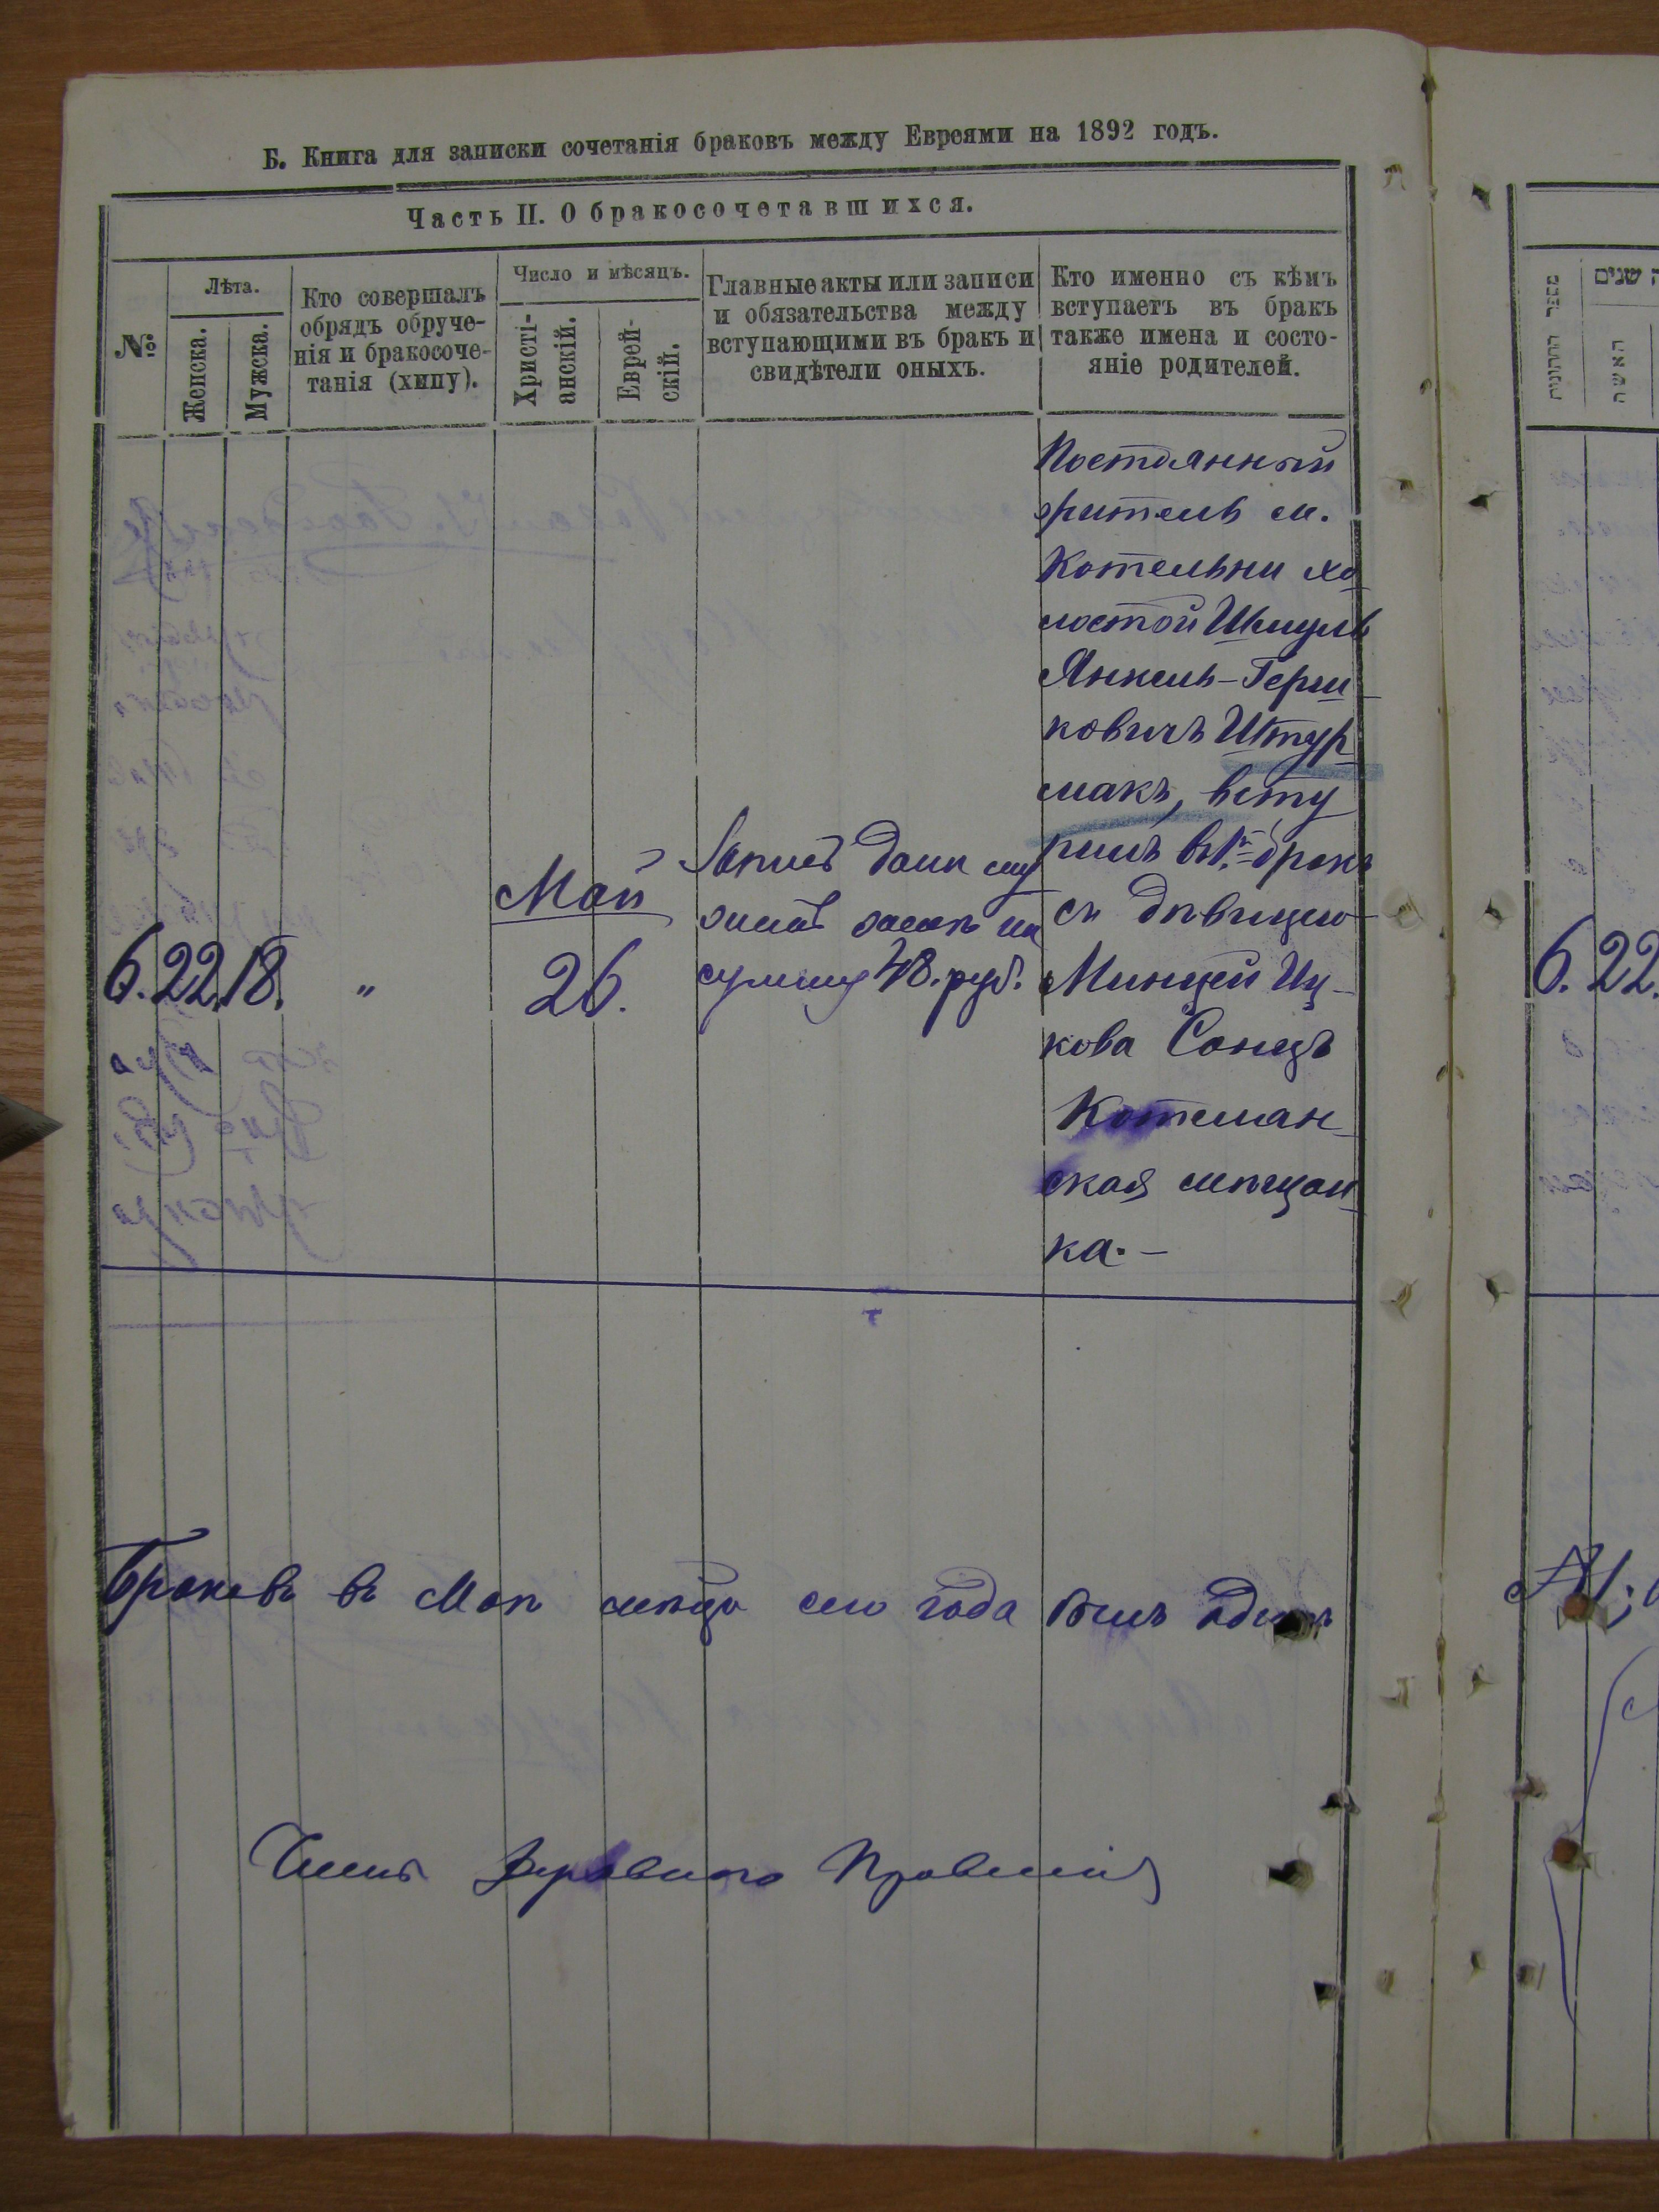 Б. Книга для записки сочетанія браковъ между Евреями на 1892 годъ.
Часть II. О бракосочетавшихся.
№
Лѣта.
Женска.
Мужска.
Кто совершалъ
обрядъ обруче-
нія и бракосоче-
танія (хипу).
Число и мѣсяцъ.
Христі-
анскій.
Еврей-
скій.
Главные акты или записи
и обязательства между
вступающими въ бракъ и
свидѣтели оныхъ.
Кто именно съ кѣмъ
вступаетъ въ бракъ
также имена и состо-
яніе родителей.
6. 22. 18. "
Май
26.
Запись дана
сумму 48. руб.
Постоянный
житель м.
Котельни хо
лостой Шмуль
Янкель-Герш
ковичъ Штур
макъ, всту
пилъ въ 1й бракъ
съ дѣвицею
Минцей Иц-
кова Сонцъ
Котелян
ская мѣщан
ка.-
Браковъ въ Маѣ мѣсяцѣ сего года былъ одинъ
Членъ Духовнаго Правленія
מספר החתונות
ה שנים
האשה
6. 22.